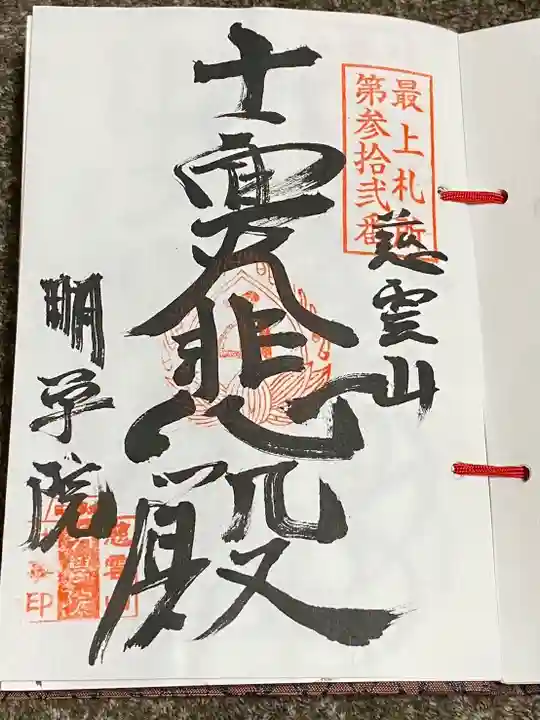 最上札所
第参拾弐番
慈雲山
十一面大悲殿
明学院
慈雲山
明學院